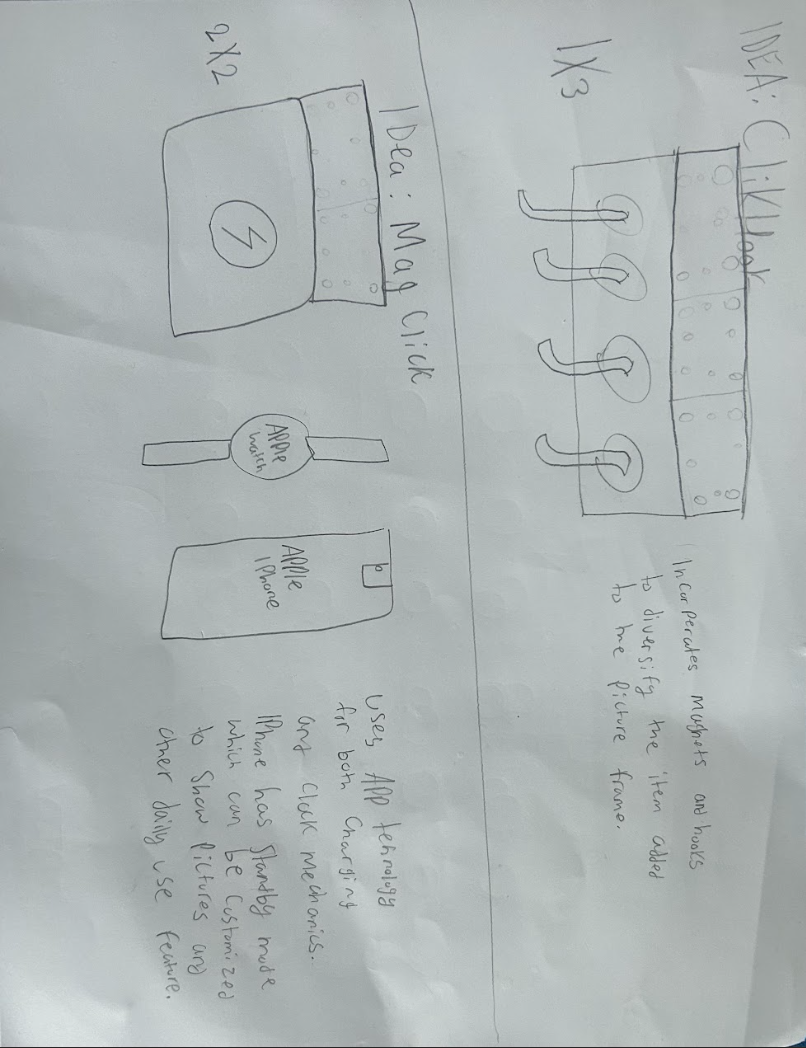 IDEA: ClikHook
1X3
Incorperates magnets and hooks
to diversify the item added
to the picture frame.
IDea: Mag Click
2X2
APPle
watch
APPle
IPhone
uses APP tehnology
for both Charging
and Clock mechanics.
IPhone has Standby mode
which can be Customized
to Show pictures and
other daily use feature.